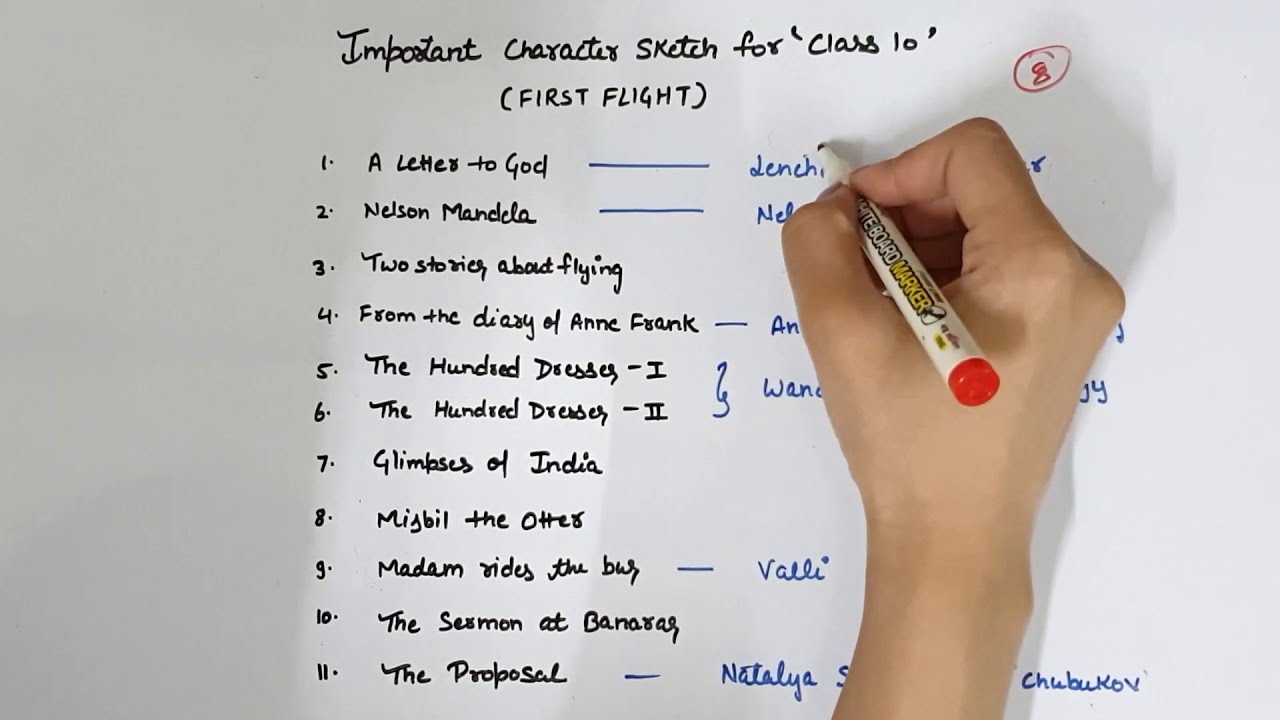 Important Character Sketch for 'Class 10'
8
(FIRST FLIGHT)
1. A Letter to God — Lenchi
2. Nelson Mandela — Nel
3. Two stories about flying
4. From the diary of Anne Frank — An
5. The Hundred Dresses - I
6. The Hundred Dresses - II } Wan gy
7. Glimpses of India
8. Mijbil the Otter
9. Madam rides the bus — Valli
10. The Sermon at Banaras
11. The Proposal — Natalya S Chubukov
WHITE BOARD MARKER